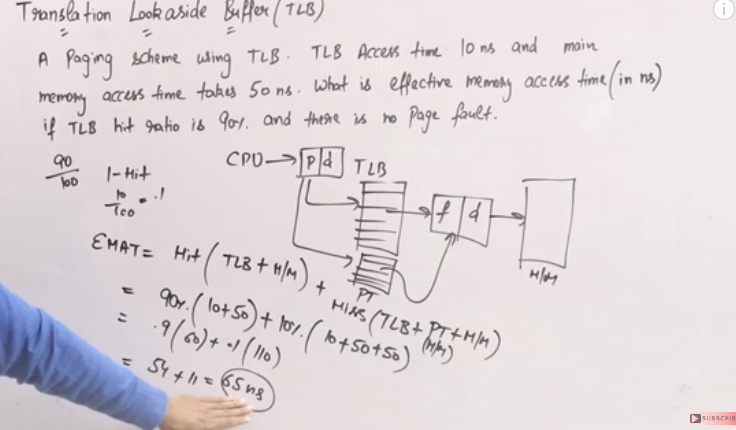 Translation Lookaside Buffer (TLB)
A Paging scheme using TLB. TLB Access time 10 ns and main
memory access time takes 50 ns. What is effective memory access time (in ns)
if TLB hit ratio is 90%. and there is no Page fault.
90/100
1-Hit
10/100 = .1
CPU → p d
TLB
f d
M/M
PT
EMAT = Hit (TLB + M/M) + Miss (TLB + PT + M/M)
(M/M)
= 90% (10+50) + 10% (10+50+50)
= .9 (60) + .1 (110)
= 54 + 11 = 65 ns
SUBSCRIB